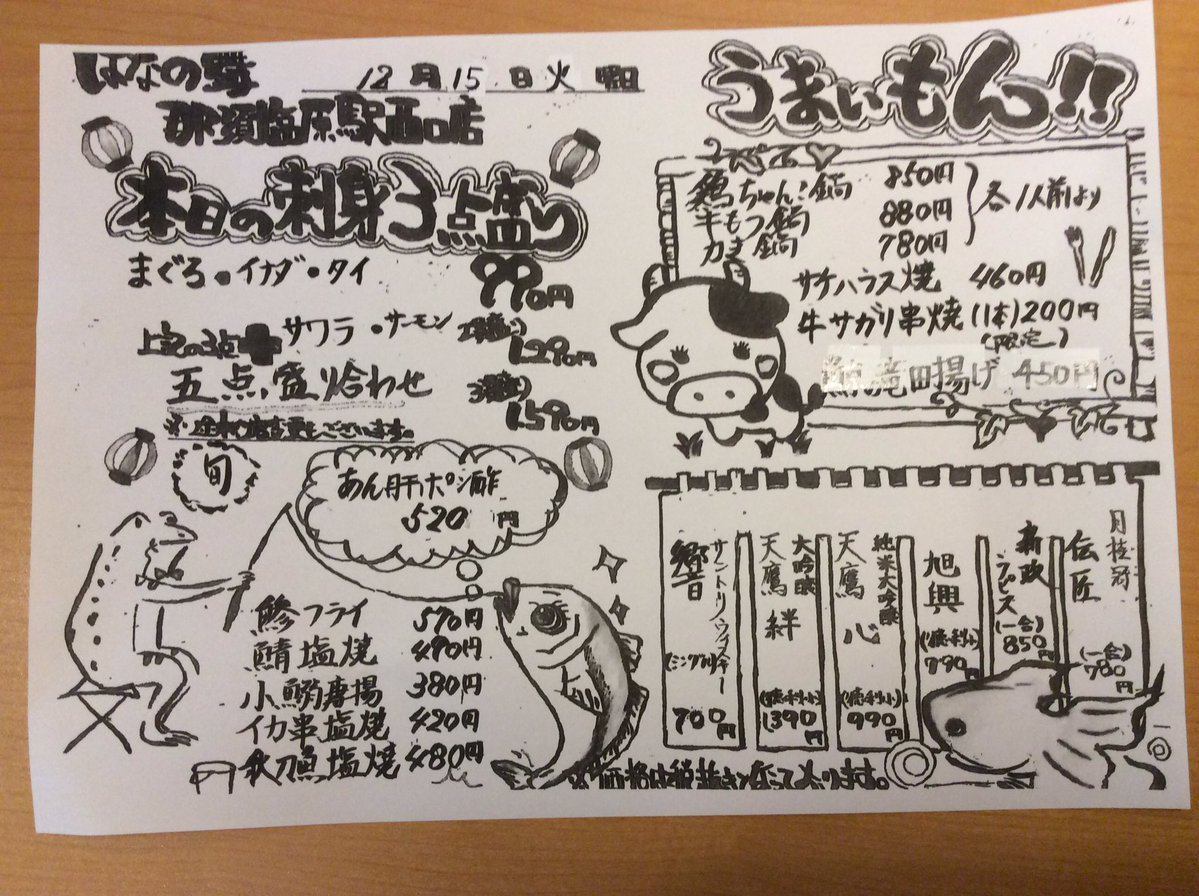 はなの舞
12月15日火曜日
那須塩原駅西口店
本日の刺身3点盛り
まぐろ・イナダ・タイ
990円
上記の3点+サワラ・サーモン
五点盛り合わせ
1,290円
1,590円
旬
あん肝ポン酢
520円
鯵フライ 570円
鯖塩焼 490円
小鯵唐揚 380円
イカ串塩焼 420円
秋刀魚塩焼 480円
うまいもんっ!!
鶏ちゃんこ鍋 850円
牛もつ鍋 880円
カキ鍋 780円
各1人前より
サケハラス焼 460円
牛サガリ串焼(1本)200円
(限定)
竜田揚げ 450円
月桂冠
伝匠
(一合)
780円
新政
ラピス
(一合)
850円
旭興
(徳利小)
790円
純米大吟醸
天鷹 心
(徳利小)
990円
大吟醸
天鷹 絆
(徳利小)
1390円
サントリーウイスキー
響
(シングル)
700円
※価格は税抜きとなっております。